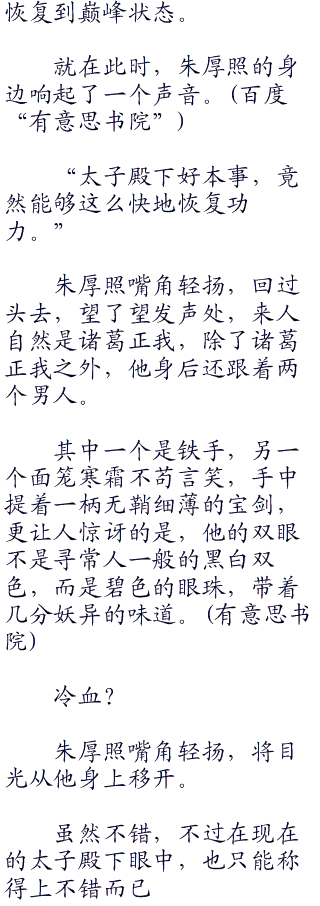 恢复到巅峰状态。
就在此时，朱厚照的身
边响起了一个声音。(百度
“有意思书院”)
“太子殿下好本事，竟
然能够这么快地恢复功
力。”
朱厚照嘴角轻扬，回过
头去，望了望发声处，来人
自然是诸葛正我，除了诸葛
正我之外，他身后还跟着两
个男人。
其中一个是铁手，另一
个面笼寒霜不苟言笑，手中
提着一柄无鞘细薄的宝剑，
更让人惊讶的是，他的双眼
不是寻常人一般的黑白双
色，而是碧色的眼珠，带着
几分妖异的味道。(有意思书
院)
冷血？
朱厚照嘴角轻扬，将目
光从他身上移开。
虽然不错，不过在现在
的太子殿下眼中，也只能称
得上不错而已